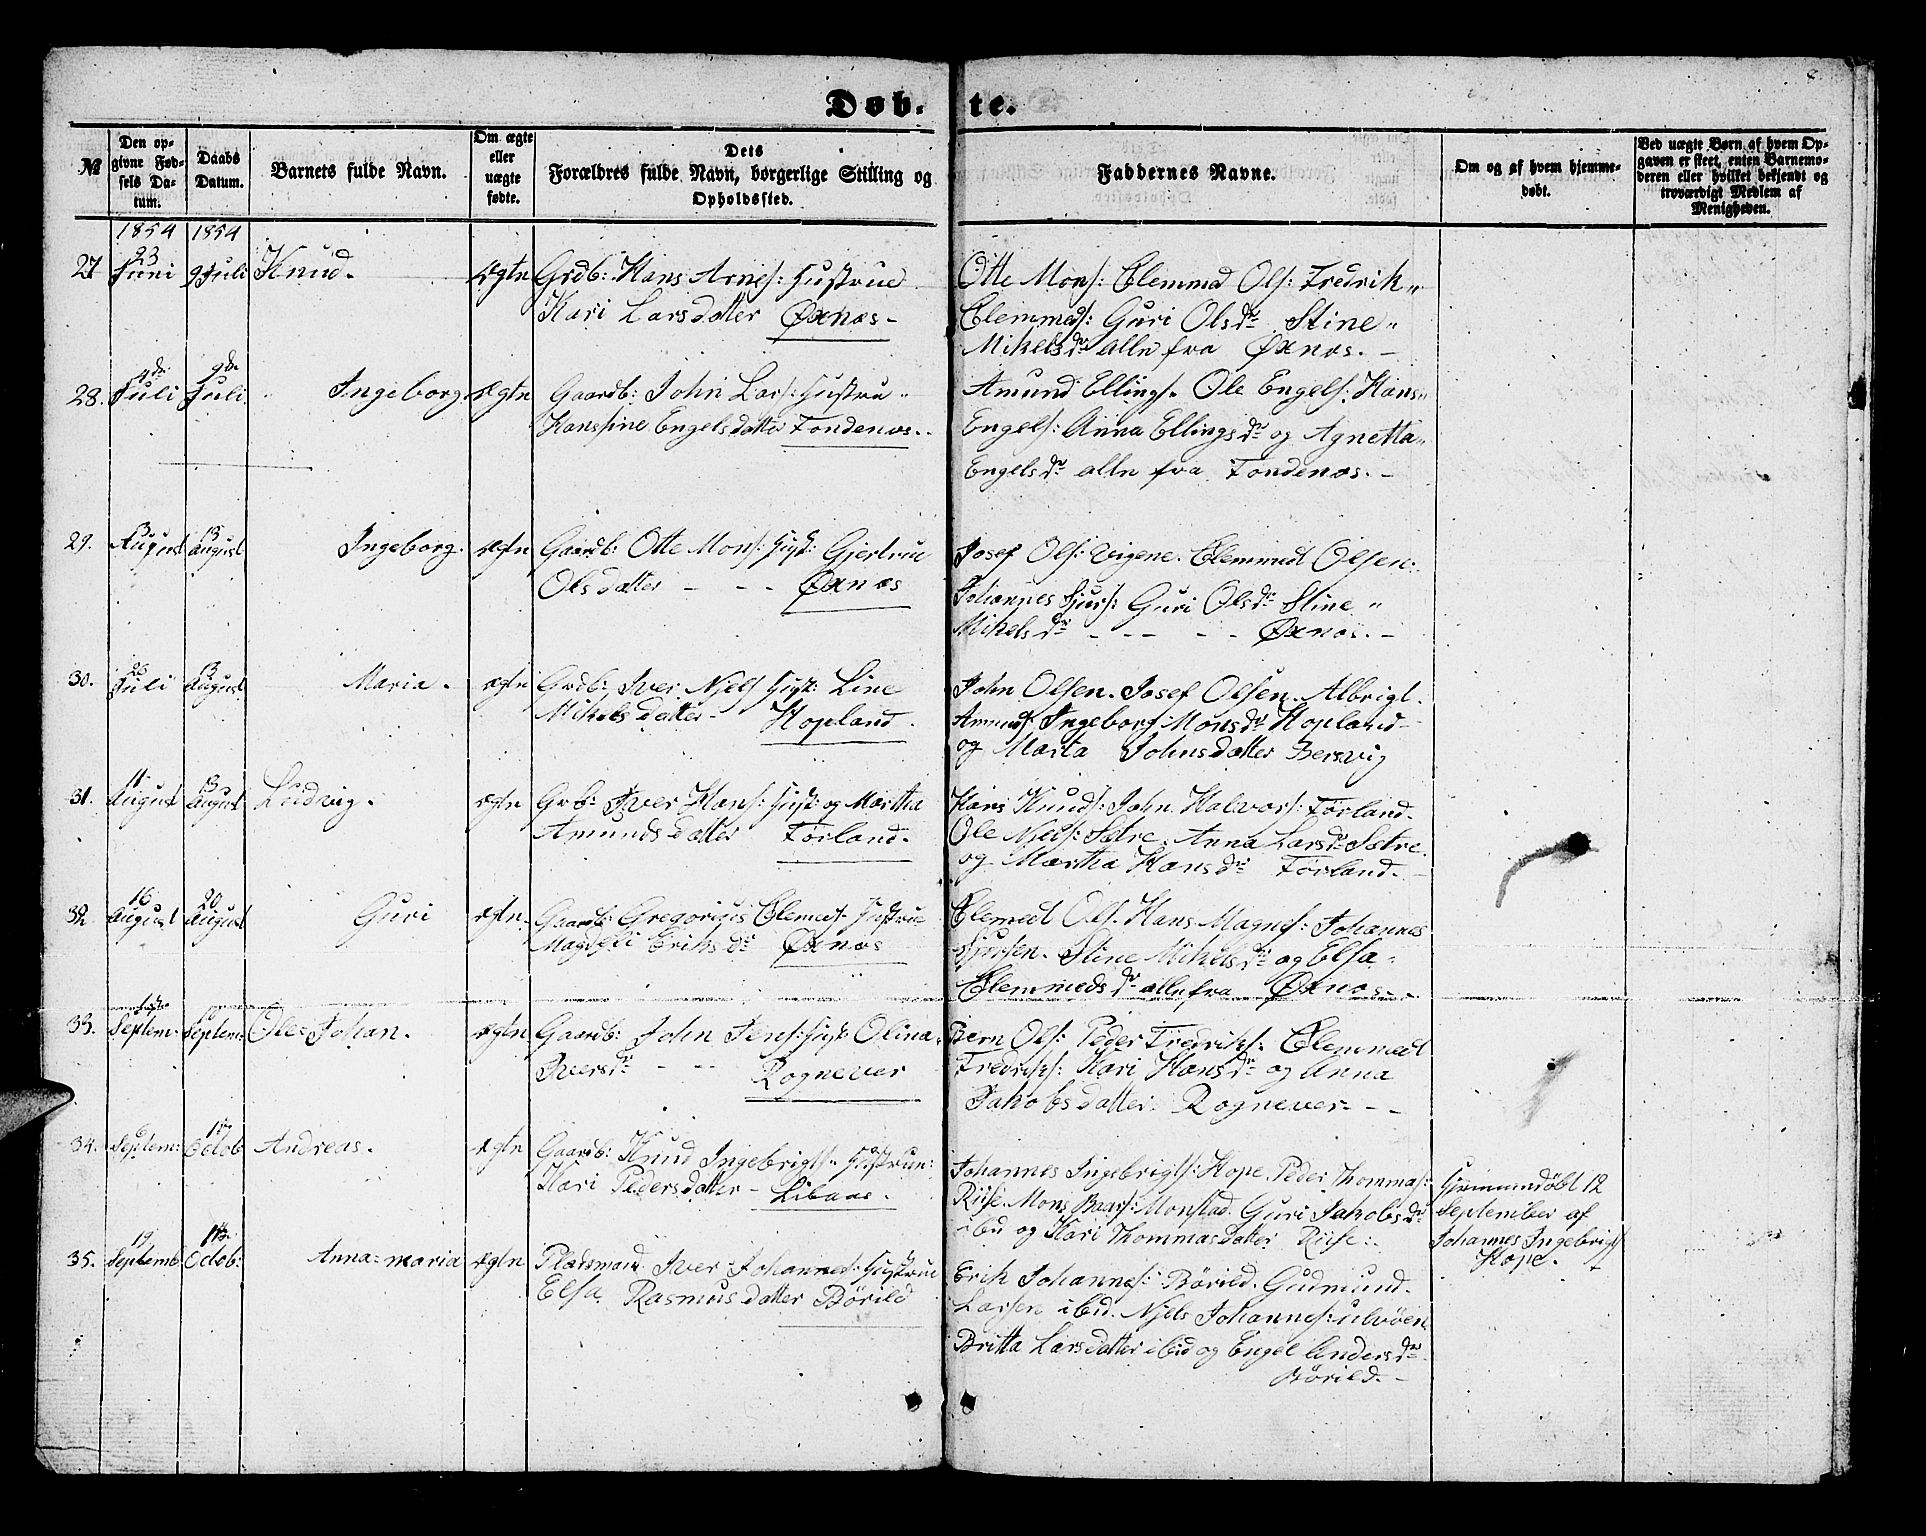 8
Døb-te.
№
Den op-
givne Fød-
sels Da-
tum.
Daabs
Datum.
Barnets fulde Navn.
Om ægte
eller
uægte
fødte.
Dets
Forældres fulde Navn, borgerlige Stilling og
Opholdssted.
Faddernes Navne.
Om og af hvem hjemme-
døbt.
Ved uægte Børn af hvem Op-
gaven er skeet, enten Barnemo-
deren eller hvilket bekjendt og
troværdigt Medlem af
Menigheden.
1854 1854
27 23 Juni 9 Juli Knud. ægtn Grdb: Hans Arnes: Hustrue
Kari Larsdatter Øxnæs-
Otte Mons: Clemmed Ols: Fredrik„
Clemmeds: Guri Olsdr Stine„
Mikelsdr alle fra Øxnæs.-
28. 4de Juli 9de Juli. Ingeborg. ægtn Gaardb: John Lars: Hustru„
Hanssine Engelsdatter Tondenæs.
Amund Ellings. Ole Engels: Hans„
Engels: Anna Ellingsdr og Agnetta„
Engelsdr alle fra Tondenæs.-
29. 3 August 13 August Ingeborg. ægtn Gaardb: Otte Mons: Hust: Gjertrue
Olsdatter - - - Øxnæs
Josef Ols: Vigene. Clemmedt Olsen:
Johannes Sjurs: Guri Olsdr Stine„
Mikelsdr - - - - - Øxnæs.-
30. 26 Juli 13 August Maria. ægtn Grdb: Iver Njels Hust: Line
Mikelsdatter- Hopland.
John Olsen. Josef Olsen. Albrigt.
Amunds Ingeborg Monsdr Hopland-
og Marta Johnsdatter Bersvig
31. 11 August 13 August Ludvig. ægtn Grb: Iver Hans: Hust: og Martha
Amundsdatter Førland.
Hans Knuds: John Halvors: Førland.
Ole Njels: Sætre. Anna Larsdr Sætre.
og Martha Hansdr Førland.-
32 16 August 20 August Guri ægtn. Gaardb: Gregorius Clemets- Hustrue
Eriksdr Øxnæs
Clemedt Ols. Hans Magnes: Johannes
Sjursen. Stine Mikelsdr og Elsa-
Clemmedsdr alle fra Øxnæs--
33. 1ste Septem- 10 Septem: Ole=Johan. ægtn Gaardb: John Jens: Hust: Olina„
Iversdr - - - Rognever
Bern Ols: Peder Fredriks. Clemmedt
Fredriks: Kari Hansdr og Anna
Jakobsdatter. Rognever- - -
34. 6 Septem: 1te Octob Andreas. ægtn Gaardb: Knud Ingebrigts. Hustrun:
Kari Pedersdatter- Libaas.
Johannes Ingebrigts: Hope. Peder Thommas:
Riise. Mons Baars: Monstad. Guri Jakobsdr
ibid og Kari Thommasdatter Riise:.
Hjemmendøbt 12
September af
Johannes Ingebrigts
Hope.
35. 19 Septemb Octob: Anna=maria ægtn Pladsmand Iver Johannes: Hustrue
Elsa Rasmusdatter Børild
Erik Johannes: Børild. Gudmund.
Larsen ibid. Njels Johannes: ulvøen
Britta Larsdatter ibid og Engel Andersdr
Børild.-